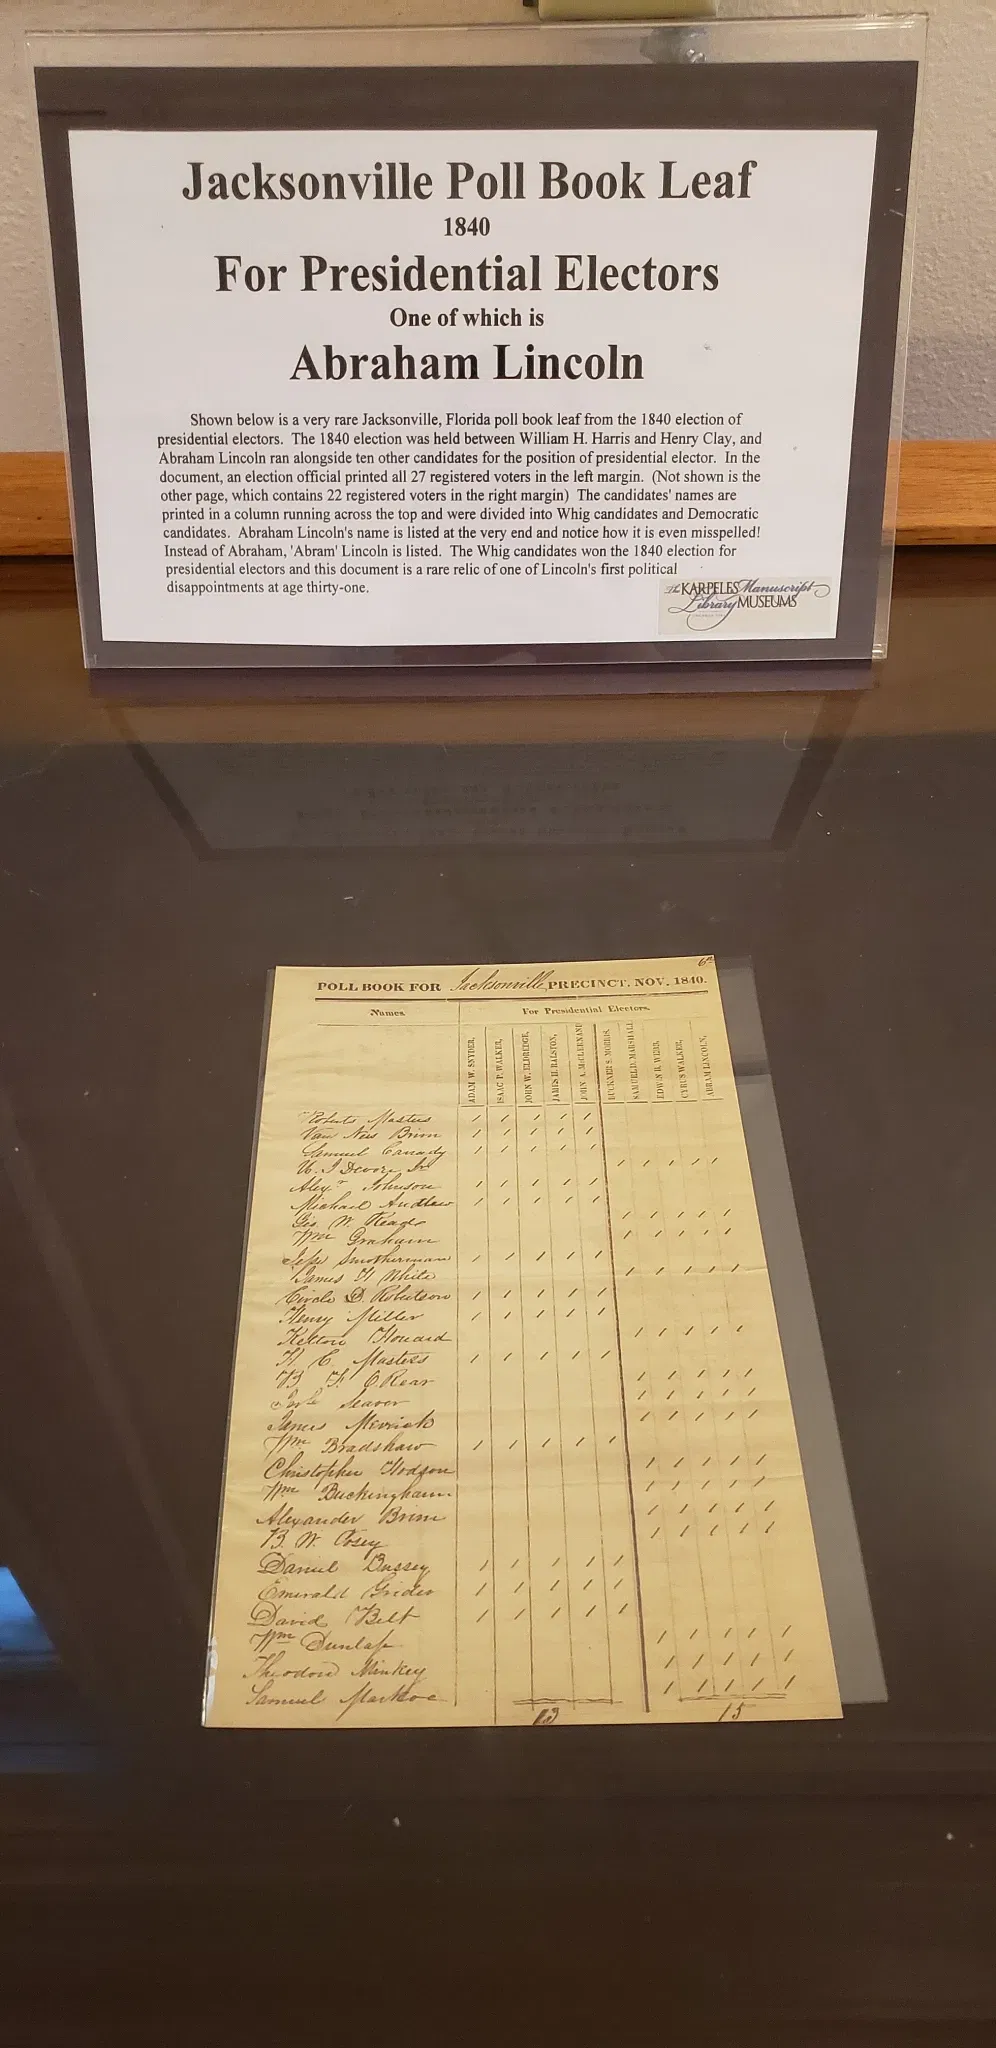 Jacksonville Poll Book Leaf
1840
For Presidential Electors
One of which is
Abraham Lincoln
Shown below is a very rare Jacksonville, Florida poll book leaf from the 1840 election of
presidential electors. The 1840 election was held between William H. Harris and Henry Clay, and
Abraham Lincoln ran alongside ten other candidates for the position of presidential elector. In the
document, an election official printed all 27 registered voters in the left margin. (Not shown is the
other page, which contains 22 registered voters in the right margin) The candidates' names are
printed in a column running across the top and were divided into Whig candidates and Democratic
candidates. Abraham Lincoln's name is listed at the very end and notice how it is even misspelled!
Instead of Abraham, 'Abram' Lincoln is listed. The Whig candidates won the 1840 election for
presidential electors and this document is a rare relic of one of Lincoln's first political
disappointments at age thirty-one.
The KARPELES Manuscript
Library MUSEUMS
POLL BOOK FOR Jacksonville PRECINCT, NOV. 1840.
Names.
For Presidential Electors.
ADAM W. SNYDER,
ISAAC P. WALKER,
JOHN W. ELDREDGE,
JAMES H. RALSTON,
JOHN A. McCLERNAND
BUCKNER S. MORRIS,
SAMUEL D. MARSHALL
EDWIN B. WEBB,
CYRUS WALKER,
ABRAM LINCOLN,
Roberts Masters
Van Ness Brim
Samuel Canady
Devore Jr
Alexr Johnson
Michael Andrew
Geo. W. Read
Wm Graham
Jesse Smotherman
James H White
Circle D. Robertson
Henry Miller
Kelton Howard
H C Masters
B F ORear
Seaver
James Merrick
Wm Bradshaw
Christopher Hodson
Wm Buckingham
Alexander Brim
B. W. Posey
Daniel Bussey
Emerald Grider
David Belt
Wm Dunlap
Minkey
Samuel Markoe
13
15